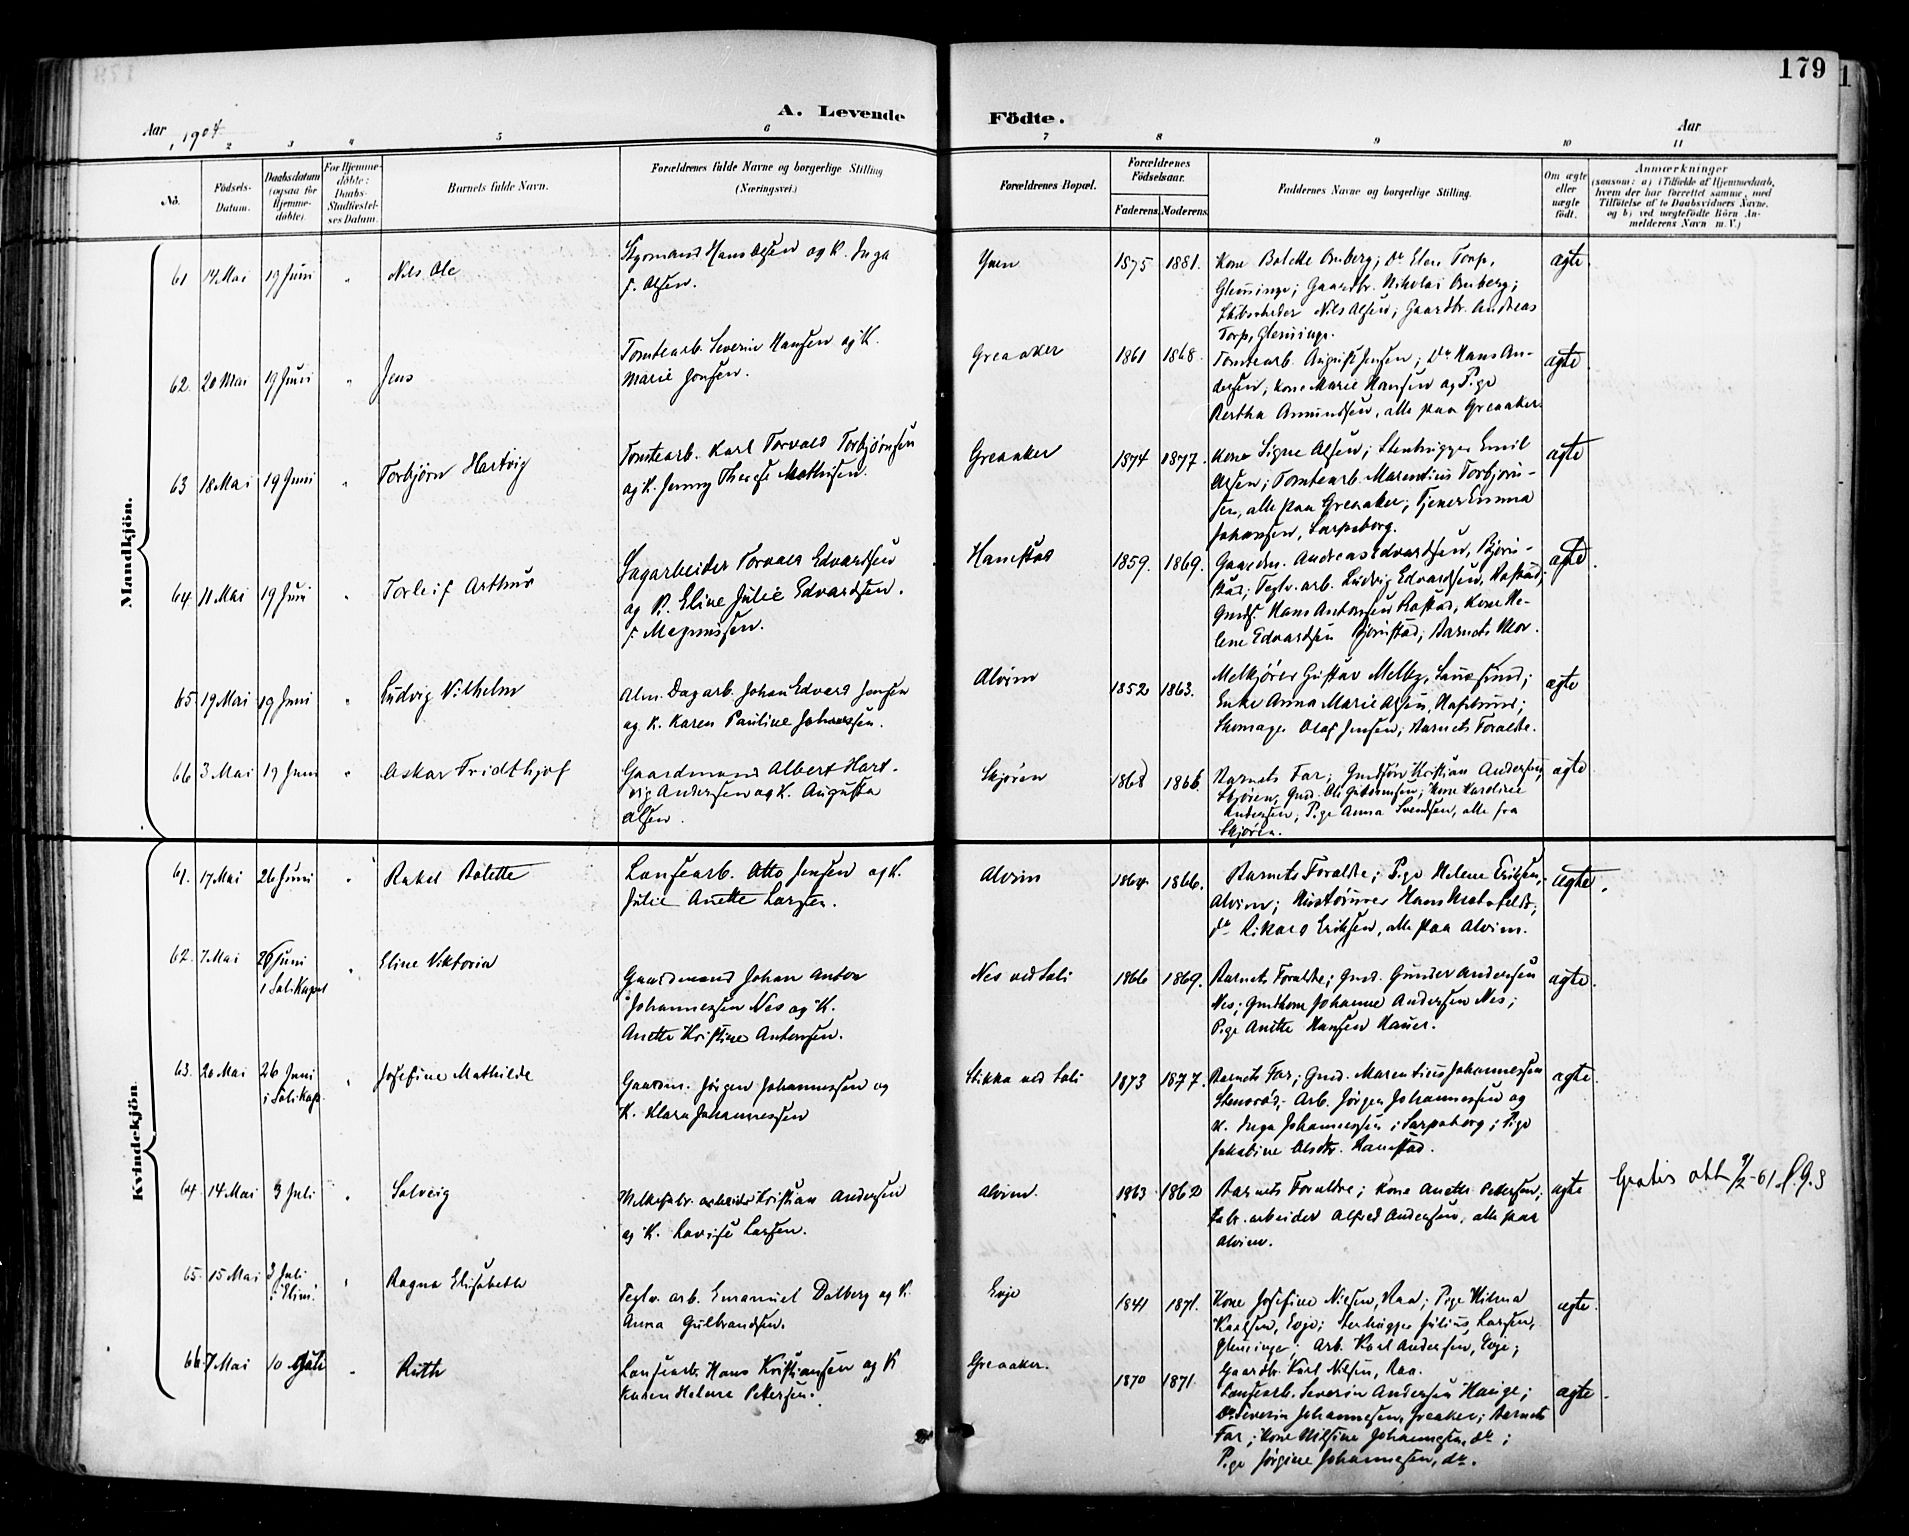 179
A. Levende Födte.
Aar 1904
Aar
2 3 4 5 6 7 8 9 10 11
No.
Födsels-Datum.
Daabsdatum (ogsaa for Hjemmedöbte).
For Hjemmedöbte: Daabs-Stadfæstelses Datum.
Barnets fulde Navn.
Forældrenes fulde Navne og borgerlige Stilling (Næringsvei.)
Forældrenes Bopæl.
Forældrenes Födselsaar.
Faderens. Moderens.
Faddernes Navne og borgerlige Stilling.
Om ægte eller uægte födt.
Anmærkninger
(saasom: a) i Tilfælde af Hjemmedaab, hvem der har forrettet samme, med Tilföielse af to Daabsvidners Navne, og b) ved uægtefödte Börn Anmelderens Navn m. V.)
Mandkjön.
61 14 Mai 19 Juni " Nils Ole
Styrmand Hans Olsen og K. Inga
f. Olsen.
Yven 1875 1881.
Kone Bolette Amberg; Do Elen Torp,
Glemminge; Gaardbr. Nikolai Amberg;
Skibsreder Nils Olsen; Gaardbr. Andreas
Torp, Glemminge.
ægte.
62 20 Mai 19 Juni " Jens
Tomtearb. Severin Hansen og K.
Marie Jonsen.
Greaaker 1861 1868.
Tomtearb. August Jensen; Do Hans An-
dersen; Kone Marie Hansen og Pige
Bertha Amundsen, alle paa Greaaker.
ægte.
63 18 Mai 19 Juni " Torbjörn Hartvig
Tomtearb. Karl Torvald Torbjörnsen
og K. Jenny Therese Mathisen.
Greaaker 1874 1877.
Kone Signe Olsen; Stenhugger Emil
Olsen; Tomtearb. Marentius Torbjörn-
sen, alle paa Greaaker; Tjener Emma
Johansen, Sarpsborg.
ægte
64 11 Mai 19 Juni " Torleif Arthur
Sagarbeider Torvald Edvardsen
og K. Eline Julie Edvardsen.
f. Magnussen.
Hanestad 1859. 1869.
Gaardm. Andreas Edvardsen, Björn-
stad; Teglv. arb. Ludvig Edvardsen, Rostad;
Gmdf. Hans Antonsen Rostad, Kone He-
lene Edvardsen Björnstad; Barnets Mor.
ægte.
65 19 Mai 19 Juni " Ludvig Vilhelm
Alm. Dagarb. Johan Edvard Jensen
og K. Karen Pauline Johannessen.
Alvim 1852 1863.
Melkjörer Gustav Melby, Sannesund;
Enke Anna Marie Olsen, Hafslund;
Skomager Olaf Jensen; Barnets Forældre.
ægte
66 3 Mai 19 Juni " Oskar Fridthjof
Gaardmand Albert Hart-
vig Andersen og K. Augusta
Olsen.
Skjören 1868 1866.
Barnets Far; Gmdsön Kristian Andersen
Skjören, Gmd. Ole Gulbransen; Kone Karoline
Andersen; Pige Anna Svendsen, alle fra
Skjören.
ægte
Kvindekjön.
61. 17 Mai 26 Juni " Rakel Bolette
Lansearb. Otto Jensen og K.
Julie Anette Larsen.
Alvim 1864 1866.
Barnets Forældre; Pige Helene Eriksen,
Alvim;
Rikard Eriksen, alle paa Alvim.
ægte.
62. 7 Mai 26 Juni i Soli Kapel " Eline Viktoria
Gaardmand Johan Anton
Johannessen Nes og K.
Anette Kristine Antonsen.
Nes ved Soli 1866 1869.
Barnets Forældre; Gmd. Gunder Andersen
Nes; Gmdkone Johanne Andersen Nes;
Pige Anette Hansen Hauer.
ægte.
63. 20 Mai 26 Juni i Soli Kap. " Josefine Mathilde
Gaardm. Jörgen Johannessen og
K. Klara Johannessen
Stikka ved Soli 1873 1877.
Barnets Far; Gmd. Marentius Johannessen
Stensröd; Arb. Jörgen Johannessen og
K. Inga Johannessen i Sarpsborg; Pige
Jakobine Olsdtr. Ranestad.
ægte.
64. 14 Mai 3 Juli " Solveig
Melkefabr. arbeider Kristian Andersen
og K. Lovise Larsen.
Alvim. 1863 1862
Barnets Forældre; Kone Anette Petersen,
fabr. arbeider Alfred Andersen, alle paa
Alvim.
ægte
Gratis att 9/2-61
65. 15 Mai 3 Juli i Elim. " Ragna Elisabeth
Teglv. arb. Emanuel Dalberg og K.
Anna Gulbrandsen.
Evje 1841 1871.
Kone Josefine Nielsen, Raa; Pige Hilma
Karlsen, Evje; Stenhugger Julius Larsen,
Glemminge; Arb. Karl Andersen, Evje;
Gaardbr. Karl Nilsen, Raa.
ægte.
66. 7 Mai 10 Juli " Ruth
Lansearb. Hans Kristiansen og K
Karen Helene Petersen.
Greaaker. 1870 1871.
Lansearb. Severin Andersen Hauge;
Do Severin Johannesen, Greaker; Barnets
Far; Kone Nilsine Johannesen, do;
Pige Jörgine Johannesen, do.
ægte.